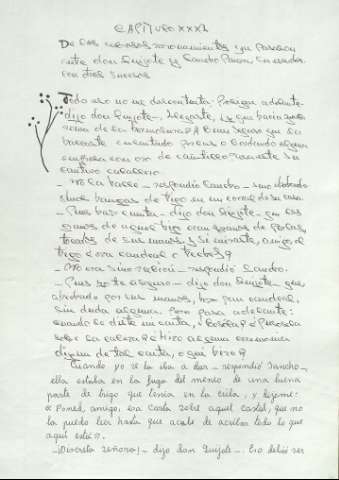 CAPÍTULO XXXI
De los sabrosos razonamientos que pasaron
entre don Quijote y Sancho Panza, su escudero
con otros sucesos
Todo eso no me descontenta; prosigue adelante-
dijo don Quijote-. Llegaste, ¿y qué hacía aquella
reina de la hermosura? A buen seguro que la
hallaste ensartando perlas o bordando alguna
empresa con oro de cañutillo para este su
cautivo caballero.
- No la hallé - respondió Sancho - sino ahechando
dos hanegas de trigo en un corral de su casa.
- Pues haz cuenta - dijo don Quijote - que los
granos de aquel trigo eran granos de perlas,
tocados de sus manos. Y si miraste, amigo, el
trigo ¿era candeal o trechel?
- No era sino rubión - respondió Sancho.
- Pues yo te aseguro - dijo don Quijote - que,
ahechado por sus manos, hizo pan candeal,
sin duda alguna. Pero pasa adelante:
cuando le diste mi carta, ¿besóla? ¿Púsosela
sobre la cabeza? ¿Hizo alguna ceremonia
digna de tal carta, o qué hizo?
Cuando yo se la iba a dar - respondió Sancho -
ella estaba en la fuga del meneo de una buena
parte de trigo que tenía en la criba, y díjome:
« Poned, amigo, esa carta sobre aquel costal, que no
la puedo leer hasta que acabe de acribar todo lo que
aquí está».
- ¡Discreta señora! - dijo don Quijote -. Eso debió ser